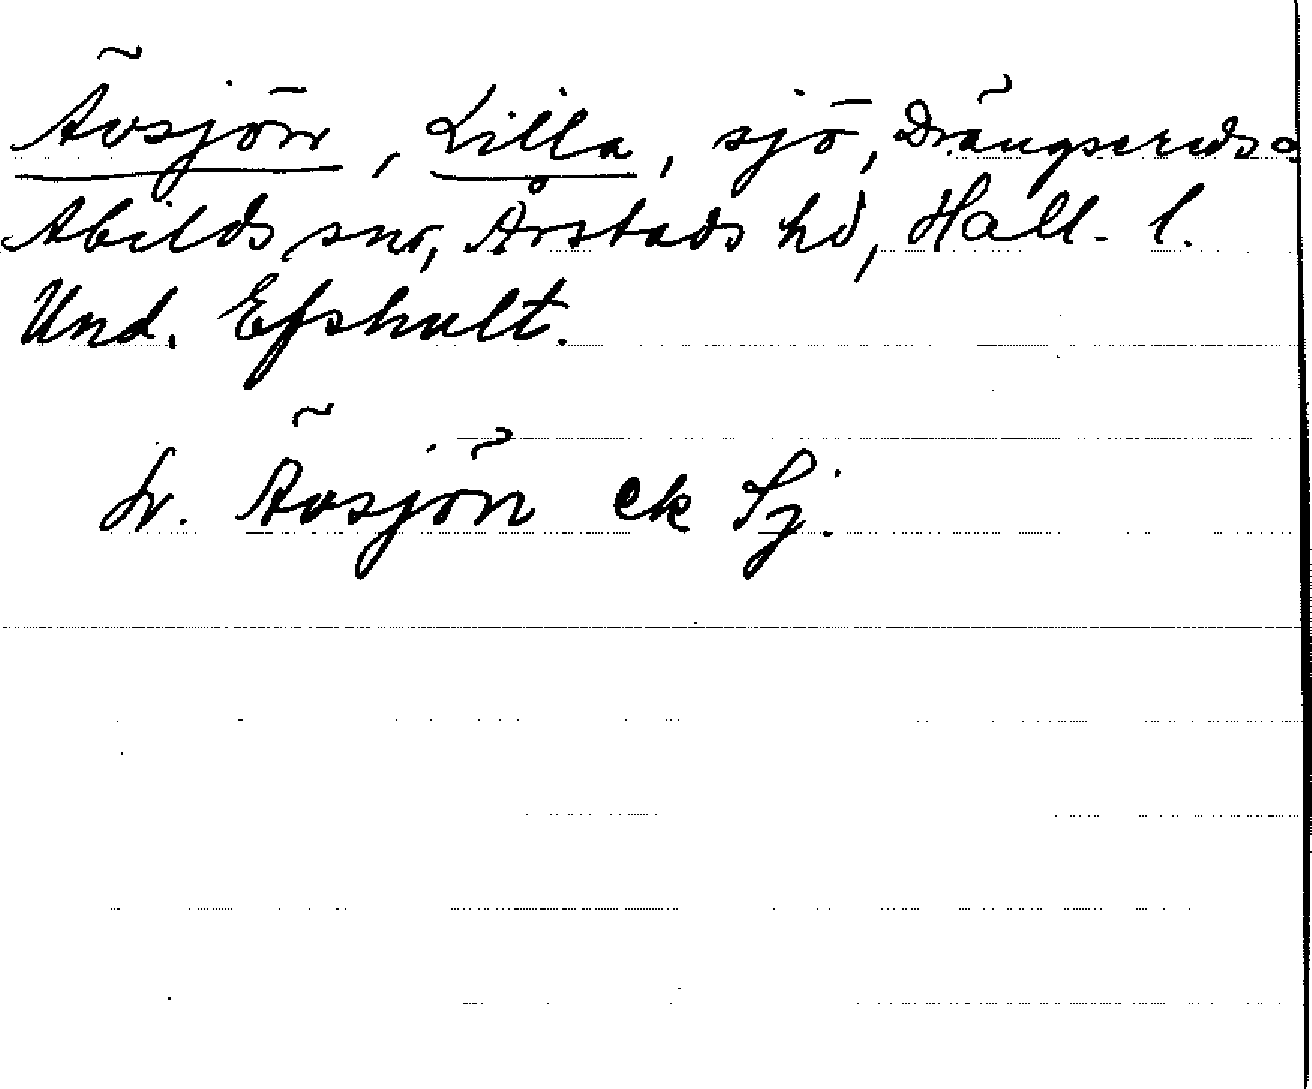 Ävsjön, Lilla, sjö, Drängsereds o
Abilds snr, Årstads hd, Hall. l.
Und. Efshult.
Lr. Ävsjön ek Sj.